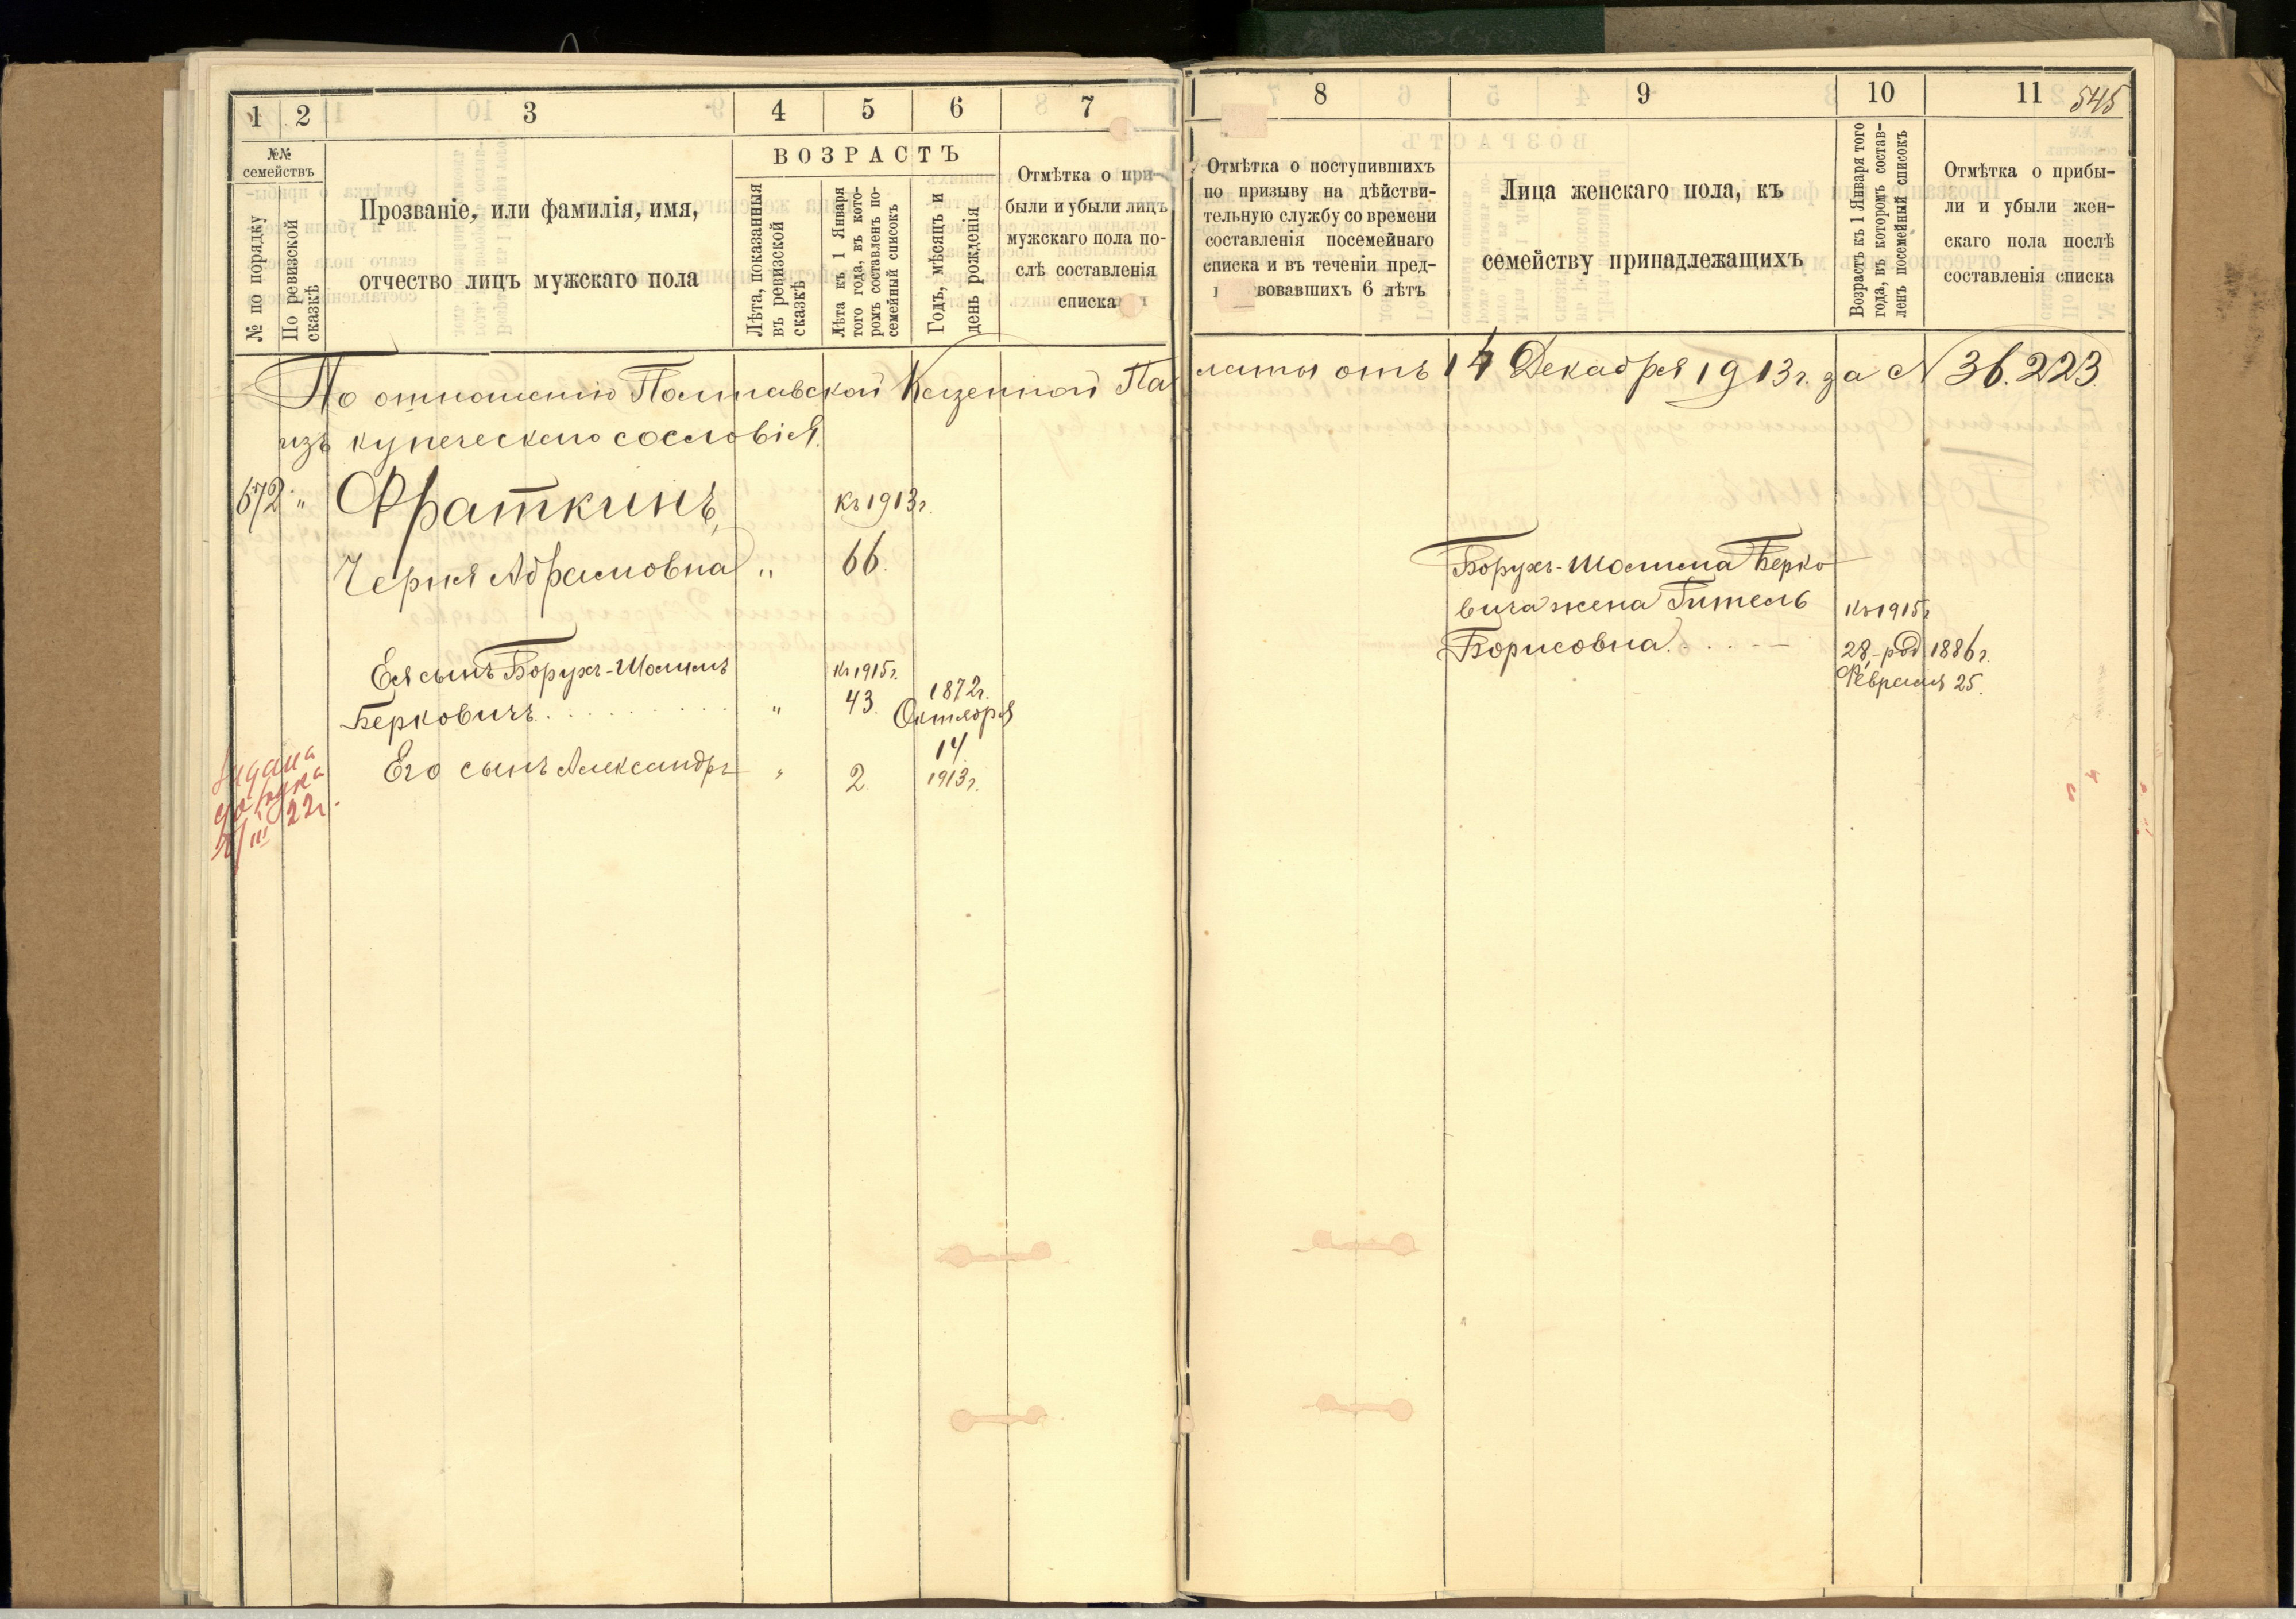 1 2 3 4 5 6 7
№№ семействъ
№ по порядку
По ревизской сказкѣ
Прозваніе, или фамилія, имя,
отчество лицъ мужскаго пола
ВОЗРАСТЪ
Лѣта, показанныя
въ ревизской
сказкѣ
Лѣта къ 1 Января
того года, въ кото-
ромъ составленъ по-
семейный списокъ
Годъ, мѣсяцъ и
день рожденія
Отмѣтка о при-
были и убыли лицъ
мужскаго пола по-
слѣ составленія
списка
8 9 10 11
545
Отмѣтка о поступившихъ
по призыву на дѣйстви-
тельную службу со времени
составленія посемейнаго
списка и въ теченіи пред-
вовавшихъ 6 лѣтъ
Лица женскаго пола, къ
семейству принадлежащихъ
Возрастъ къ 1 Января того
года, въ которомъ состав-
ленъ посемейный списокъ
Отмѣтка о прибы-
ли и убыли жен-
скаго пола послѣ
составленія списка
По отношенію Полтавской Казенной Палаты отъ 14 Декабря 1913г. за N 36.223.
изъ купеческаго сословія.
672 " Фраткинъ, къ 1913г.
Черня Абрамовна " 66.
Ея сынъ Борухъ-Шолымъ къ 1915г.
Берковичъ " 43. 1872г.
Октября
14.
Его сынъ Александръ " 2. 1913г.
Борухъ-Шолыма Берко
вича жена Гитель къ 1915г
Борисовна. 28, род. 1886г.
Февраля 25.
Видана
довідка
III 22г.